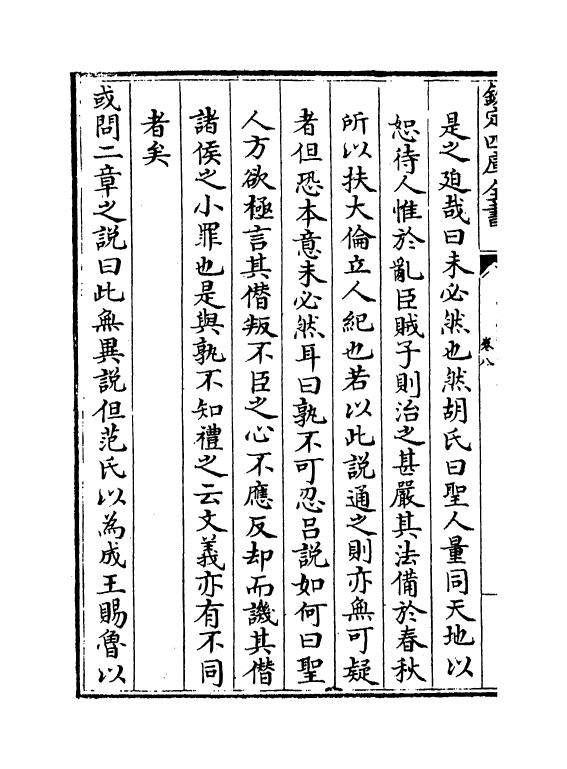 欽定四庫全書
卷八
是之廹哉曰未必然也然胡氏曰聖人量同天地以
恕待人惟於亂臣賊子則治之甚嚴其法備於春秋
所以扶大倫立人紀也若以此說通之則亦無可疑
者但恐本意未必然耳曰孰不可忍吕說如何曰聖
人方欲極言其僭叛不臣之心不應反却而譏其僭
諸侯之小罪也是與孰不知禮之云文義亦有不同
者矣
或問二章之說曰此無異說但范氏以為成王賜魯以